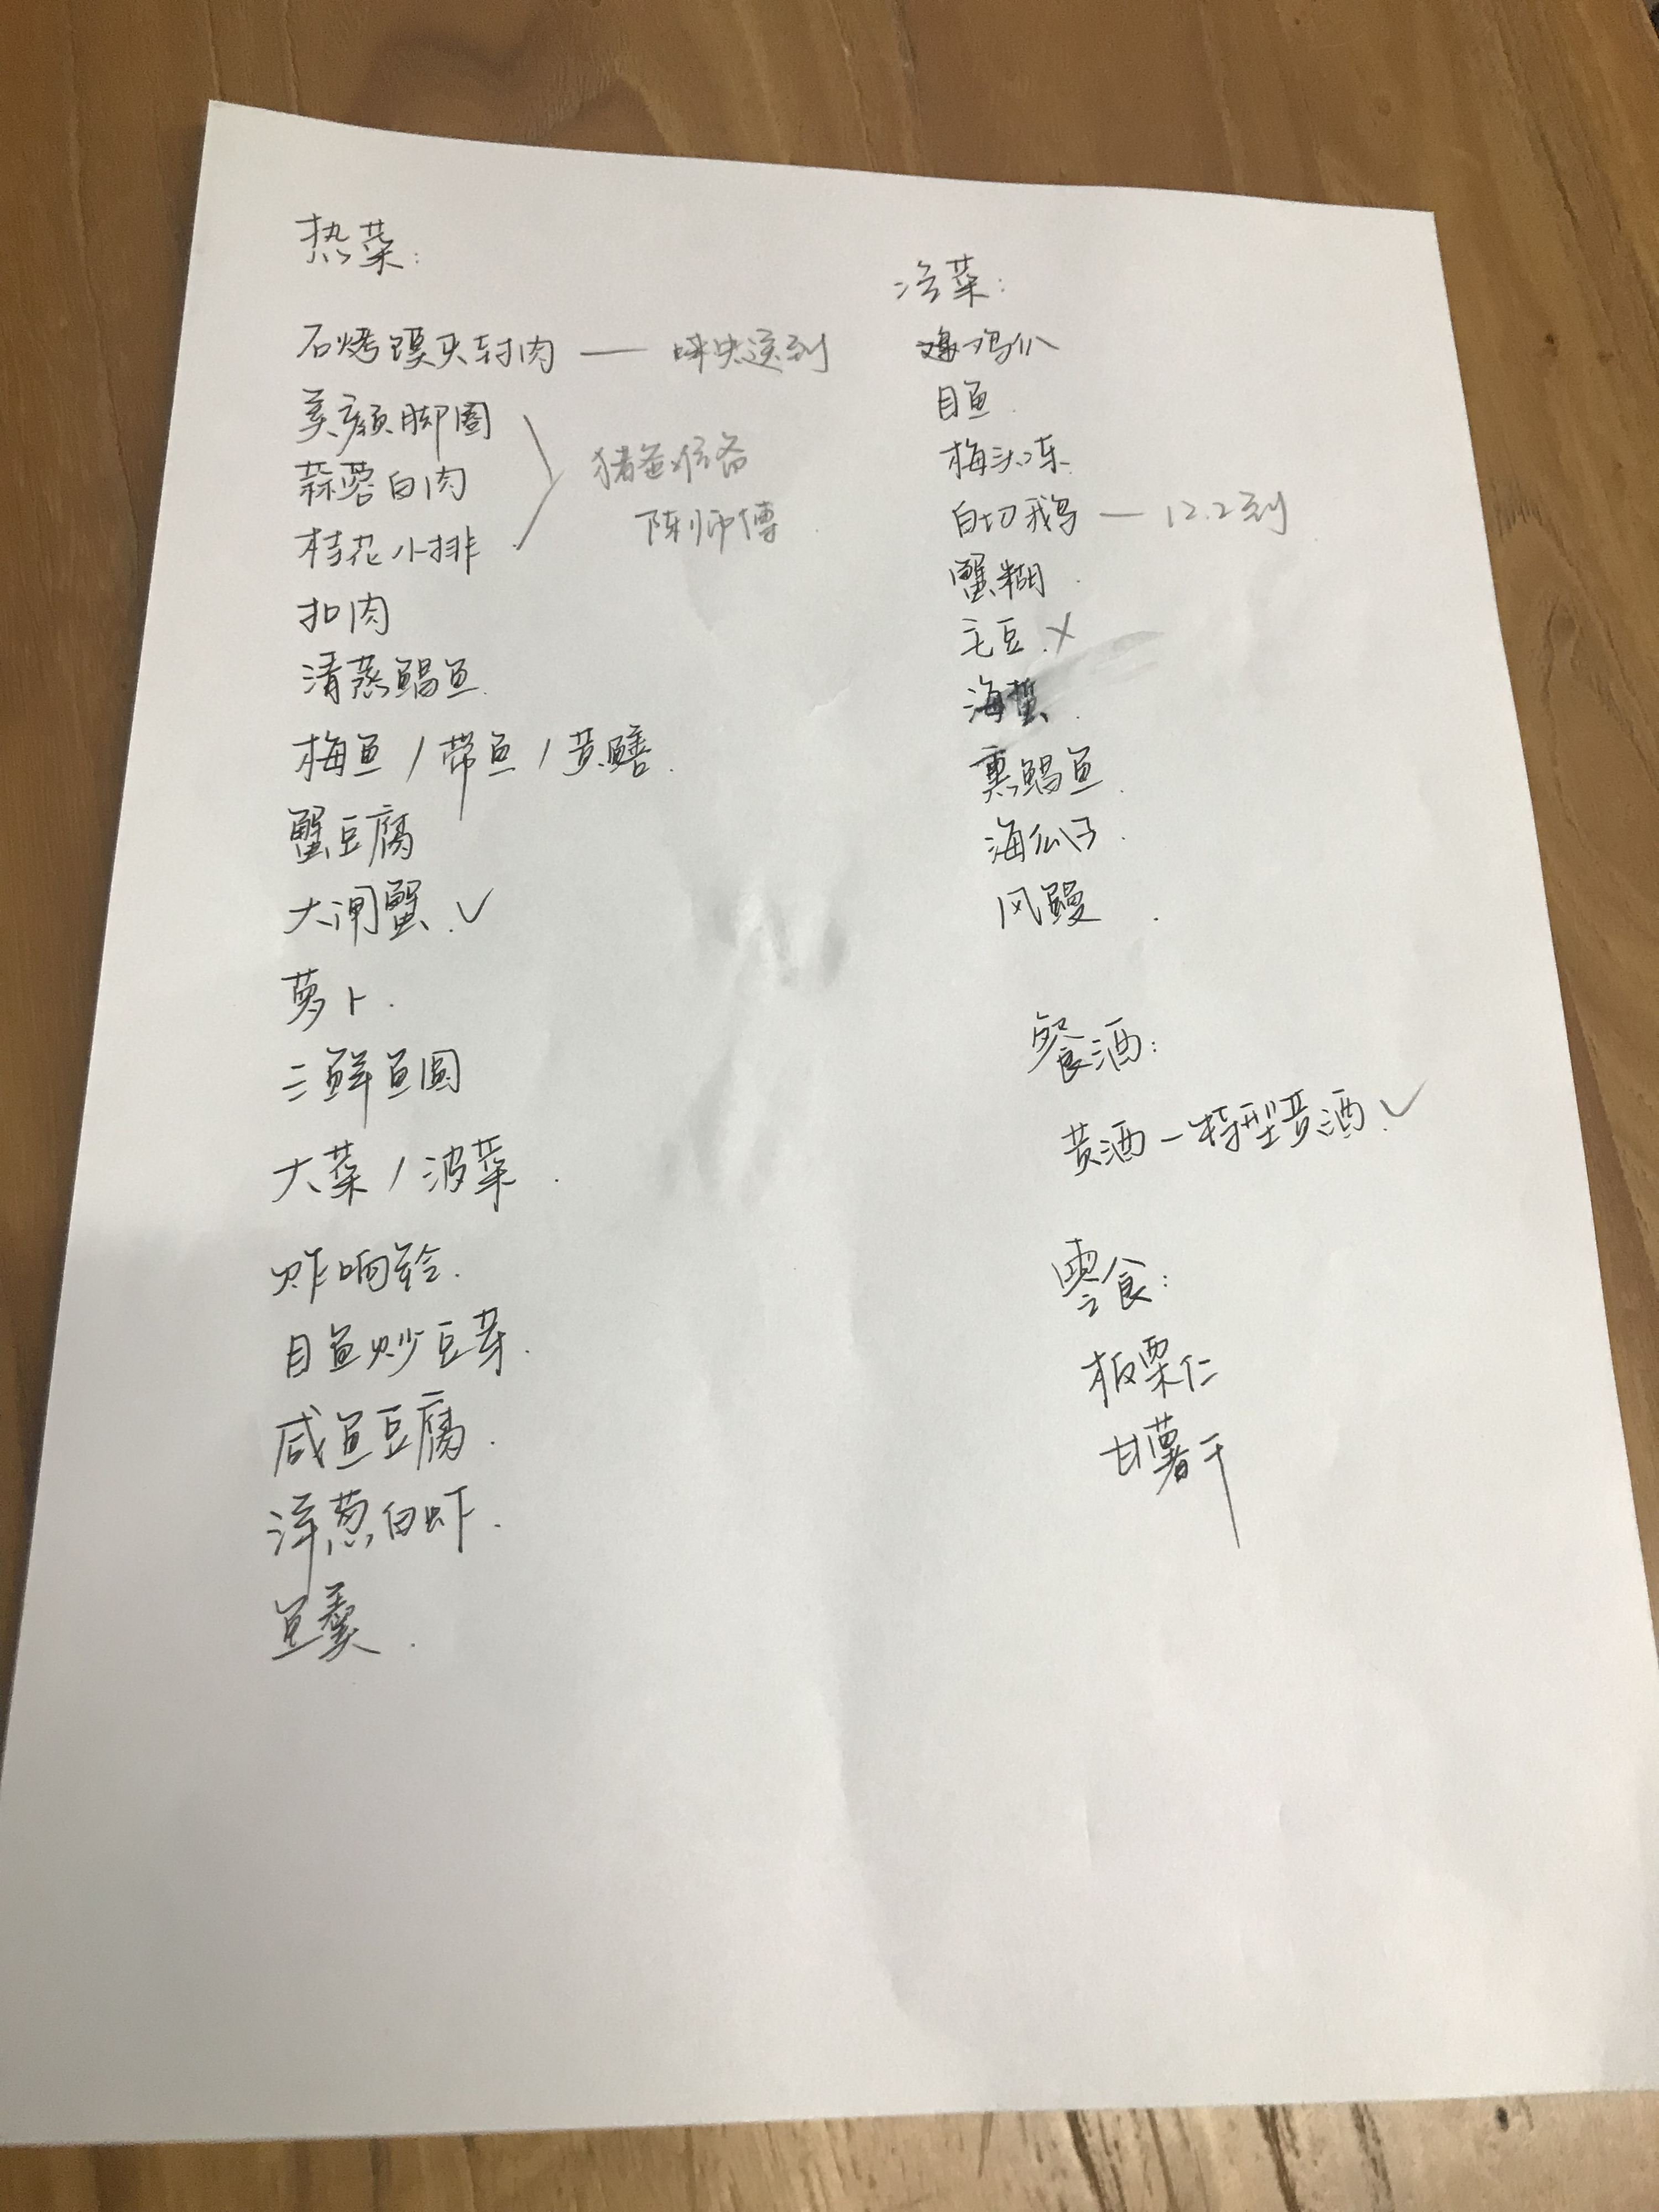 热菜:
石烤馍夹封肉 —— 味央送到
美颜脚圈
蒜蓉白肉
桂花小排
猪爸准备
陈师傅
扣肉
清蒸鲳鱼.
梅鱼/带鱼/黄鳝.
蟹豆腐
大闸蟹.✓
萝卜.
三鲜鱼圆
大菜/波菜.
炸响铃.
目鱼炒豆芽.
咸鱼豆腐.
洋葱白虾.
鱼羹.
冷菜:
鸡爪
目鱼.
梅头冻.
白切鹅 — 12.2到
蟹糊.
毛豆.×
海蜇.
熏鲳鱼.
海瓜子.
风鳗.
餐酒:
黄酒-特型黄酒.✓
零食:
板栗仁
甘薯干